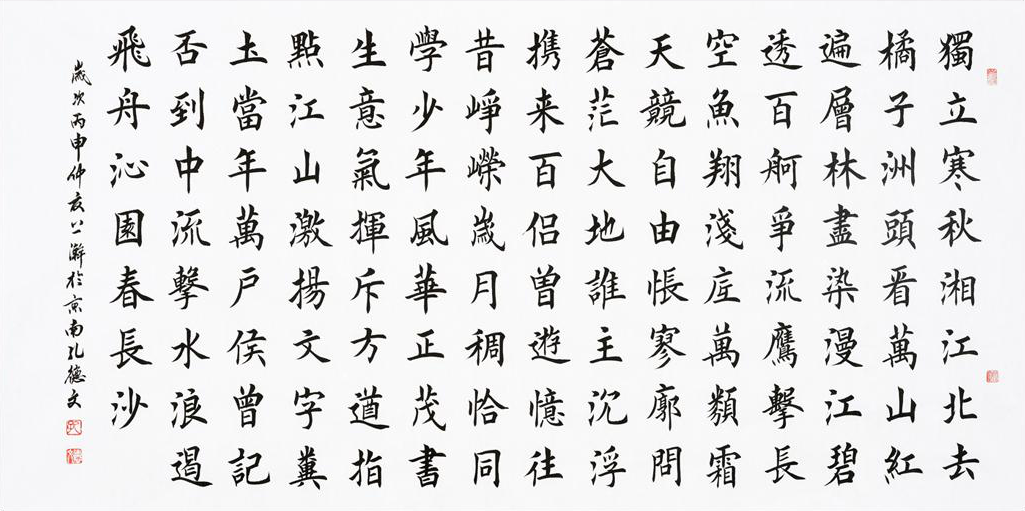 獨立寒秋湘江北去
橘子洲頭看萬山紅
遍層林盡染漫江碧
透百舸爭流鷹擊長
空魚翔淺底萬類霜
天競自由悵寥廓問
蒼茫大地誰主沉浮
携来百侣曾遊憶往
昔崢嶸歲月稠恰同
學少年風華正茂書
生意氣揮斥方遒指
點江山激揚文字糞
土當年萬户侯曾記
否到中流擊水浪遏
飛舟沁園春長沙
歲次丙申仲夏上澣於京南孔德文